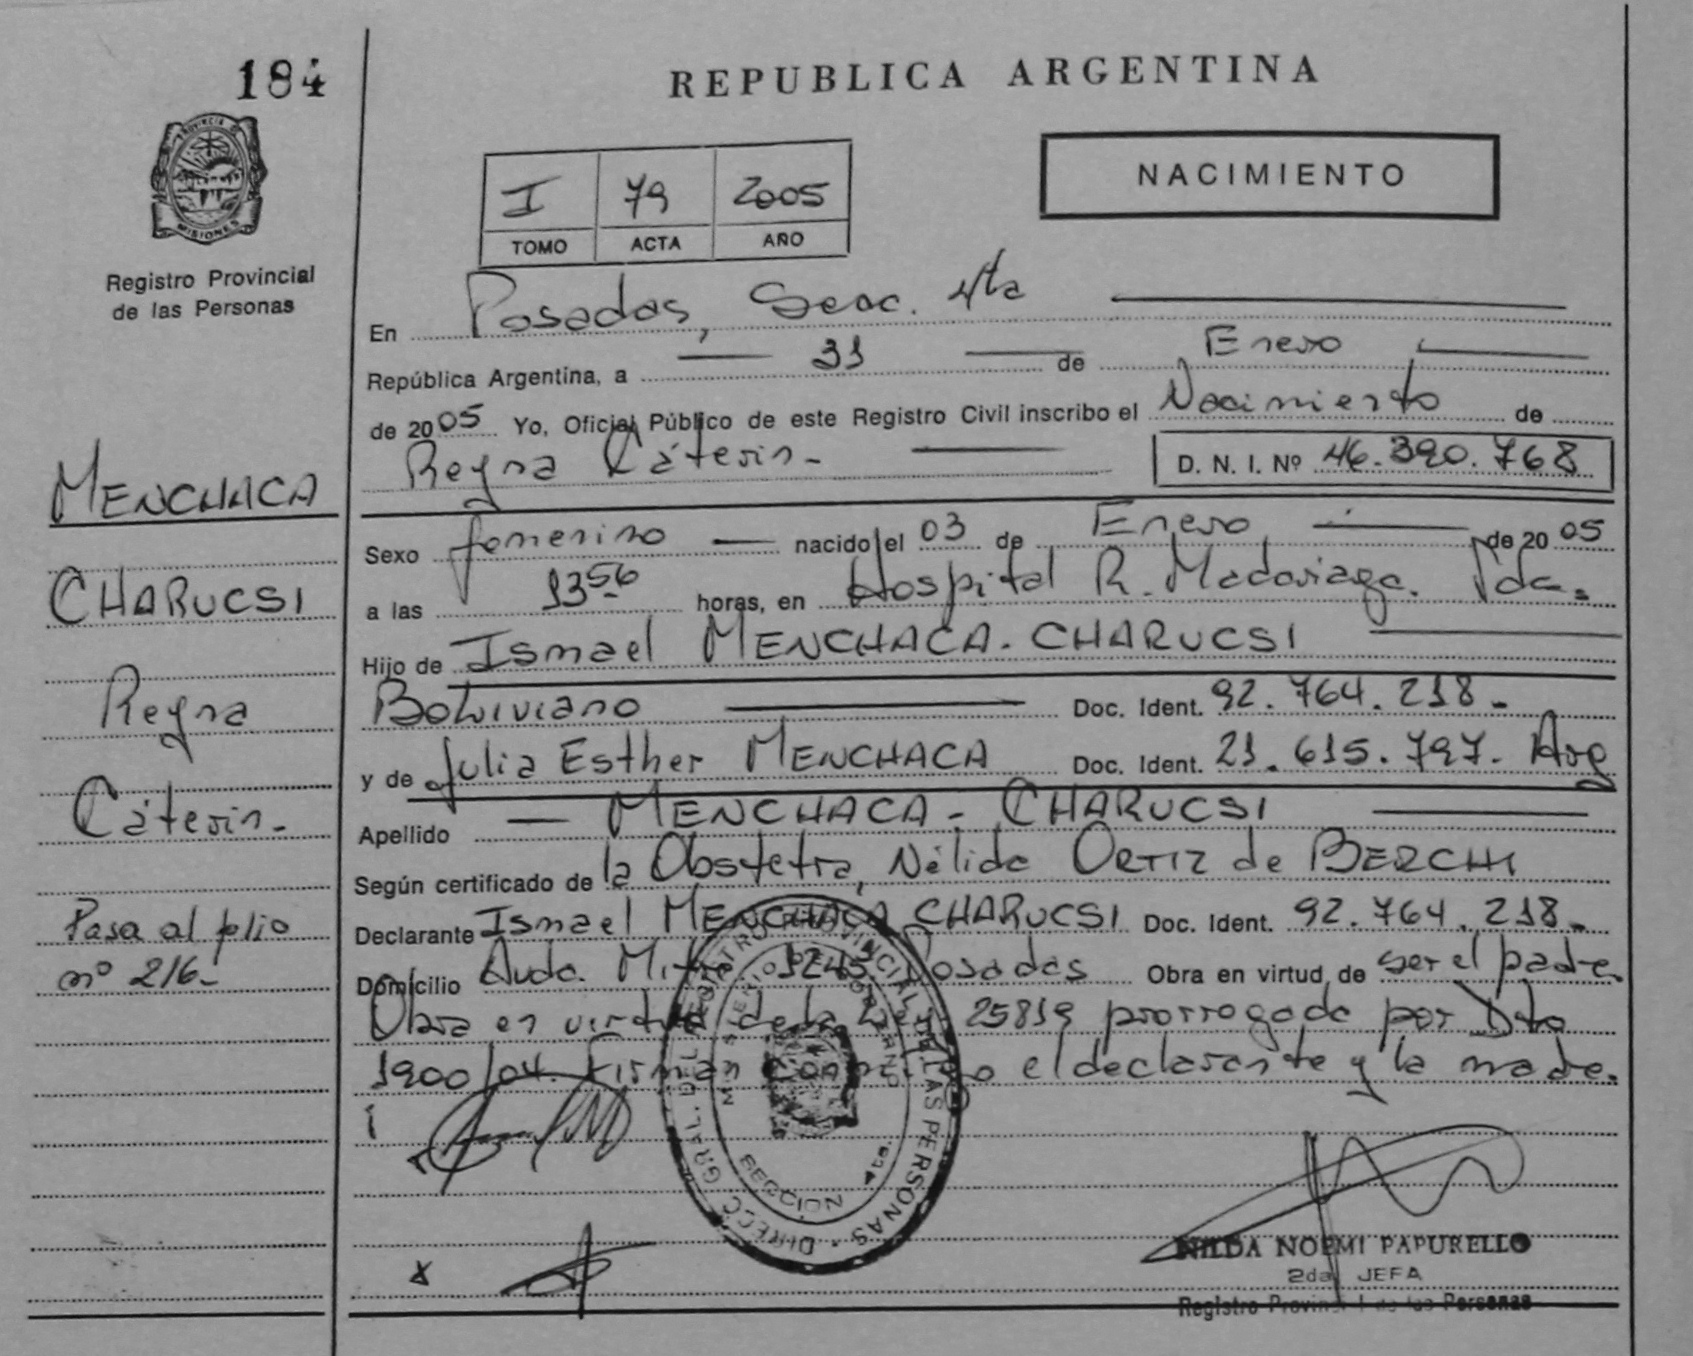 184
PROVINCIA DE
MISIONES
Registro Provincial
de las Personas
MENCHACA
CHARUCSI
Reyna
Cáterin.-
Pasa al folio
nº 216-
REPUBLICA ARGENTINA
NACIMIENTO
I 79 2005
TOMO ACTA AÑO
En Posadas, Secc. 4ta
República Argentina, a 31 de Enero
de 2005 Yo, Oficial Público de este Registro Civil inscribo el Nacimiento de
Reyna Cáterin.- D. N. I. Nº 46.390.768
Sexo femenino nacido el 03 de Enero de 2005
a las 13 56 horas, en Hospital R. Madariaga. Pdas.
Hijo de Ismael MENCHACA. CHARUCSI
Boliviano Doc. Ident. 92.764.218.-
y de Julia Esther MENCHACA Doc. Ident. 21.615.797. Arg
Apellido MENCHACA - CHARUCSI
Según certificado de la Obstetra, Nélida ORTIZ de BERCHI
Declarante Ismael MENCHACA CHARUCSI Doc. Ident. 92.764.218.-
Domicilio Avda. Mitre Posadas Obra en virtud de ser el padre.
Obra en virtud de la Ley 25819 prorrogada por Dto
1900/04. Firman conmigo el declarante y la madre.
DIRECC. GRAL. DEL REGISTRO PROVINCIAL DE LAS PERSONAS
SECCION 4ta.
NILDA NOEMI PAPURELLO
2da. JEFA
Registro Provincial de las Personas